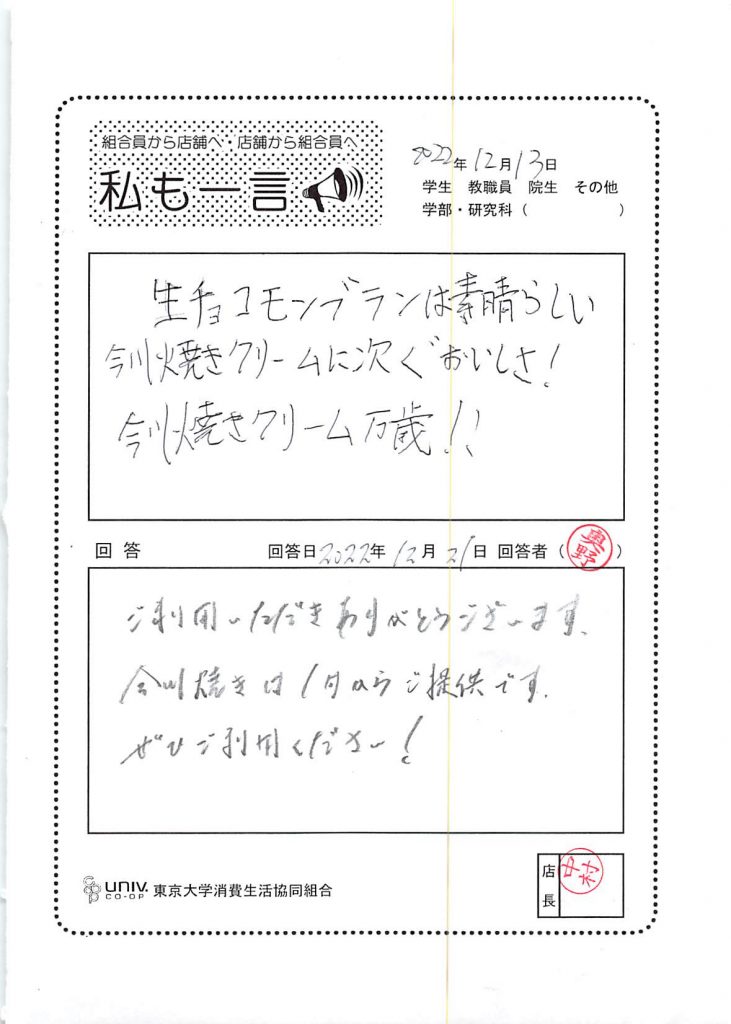 組合員から店舗へ・店舗から組合員へ
私も一言
2022年12月13日
学生 教職員 院生 その他
学部・研究科（ ）
生チョコモンブランは素晴らしい
今川焼きクリームに次ぐおいしさ!
今川焼きクリーム万歳!!
回答 回答日2022年12月21日 回答者（奥野）
ご利用いただきありがとうございます。
今川焼きは1月からご提供です。
ぜひご利用ください!
店長 中村
coop UNIV. CO-OP 東京大学消費生活協同組合